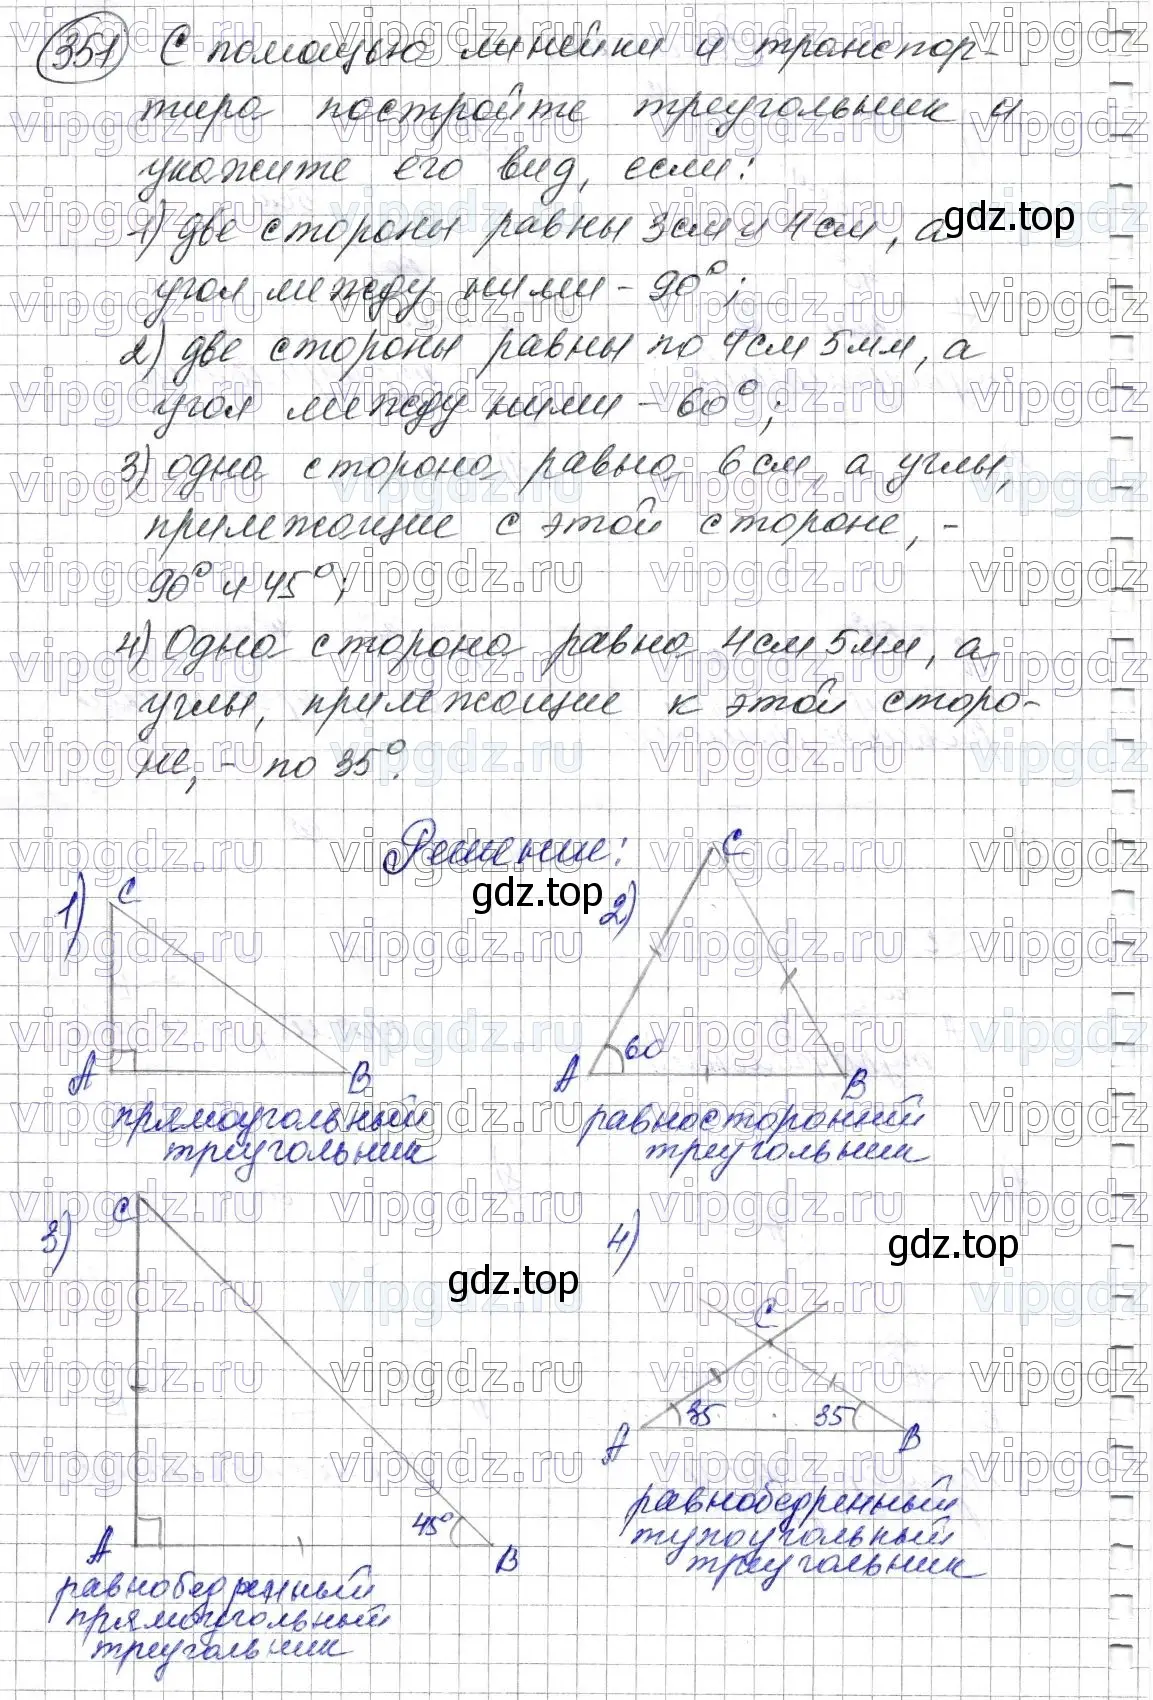 351 С помощью линейки и транспор-
тира постройте треугольник и
укажите его вид, если:
1) две стороны равны 3 см и 4 см, а
угол между ними - 90°;
2) две стороны равны по 4 см 5 мм, а
угол между ними - 60°;
3) одна сторона равна 6 см, а углы,
прилежащие с этой стороне, -
90° и 45°;
4) Одна сторона равна 4 см 5 мм, а
углы, прилежащие к этой сторо-
не, - по 35°.
Решение:
1) C
A B
прямоугольный
треугольник
2) C
60
A B
равносторонний
треугольник
3) C
45°
A B
равнобедренный
прямоугольный
треугольник
4) C
35 35
A B
равнобедренный
тупоугольный
треугольник
gdz.top
gdz.top
gdz.top
gdz.top
vipgdz.ru